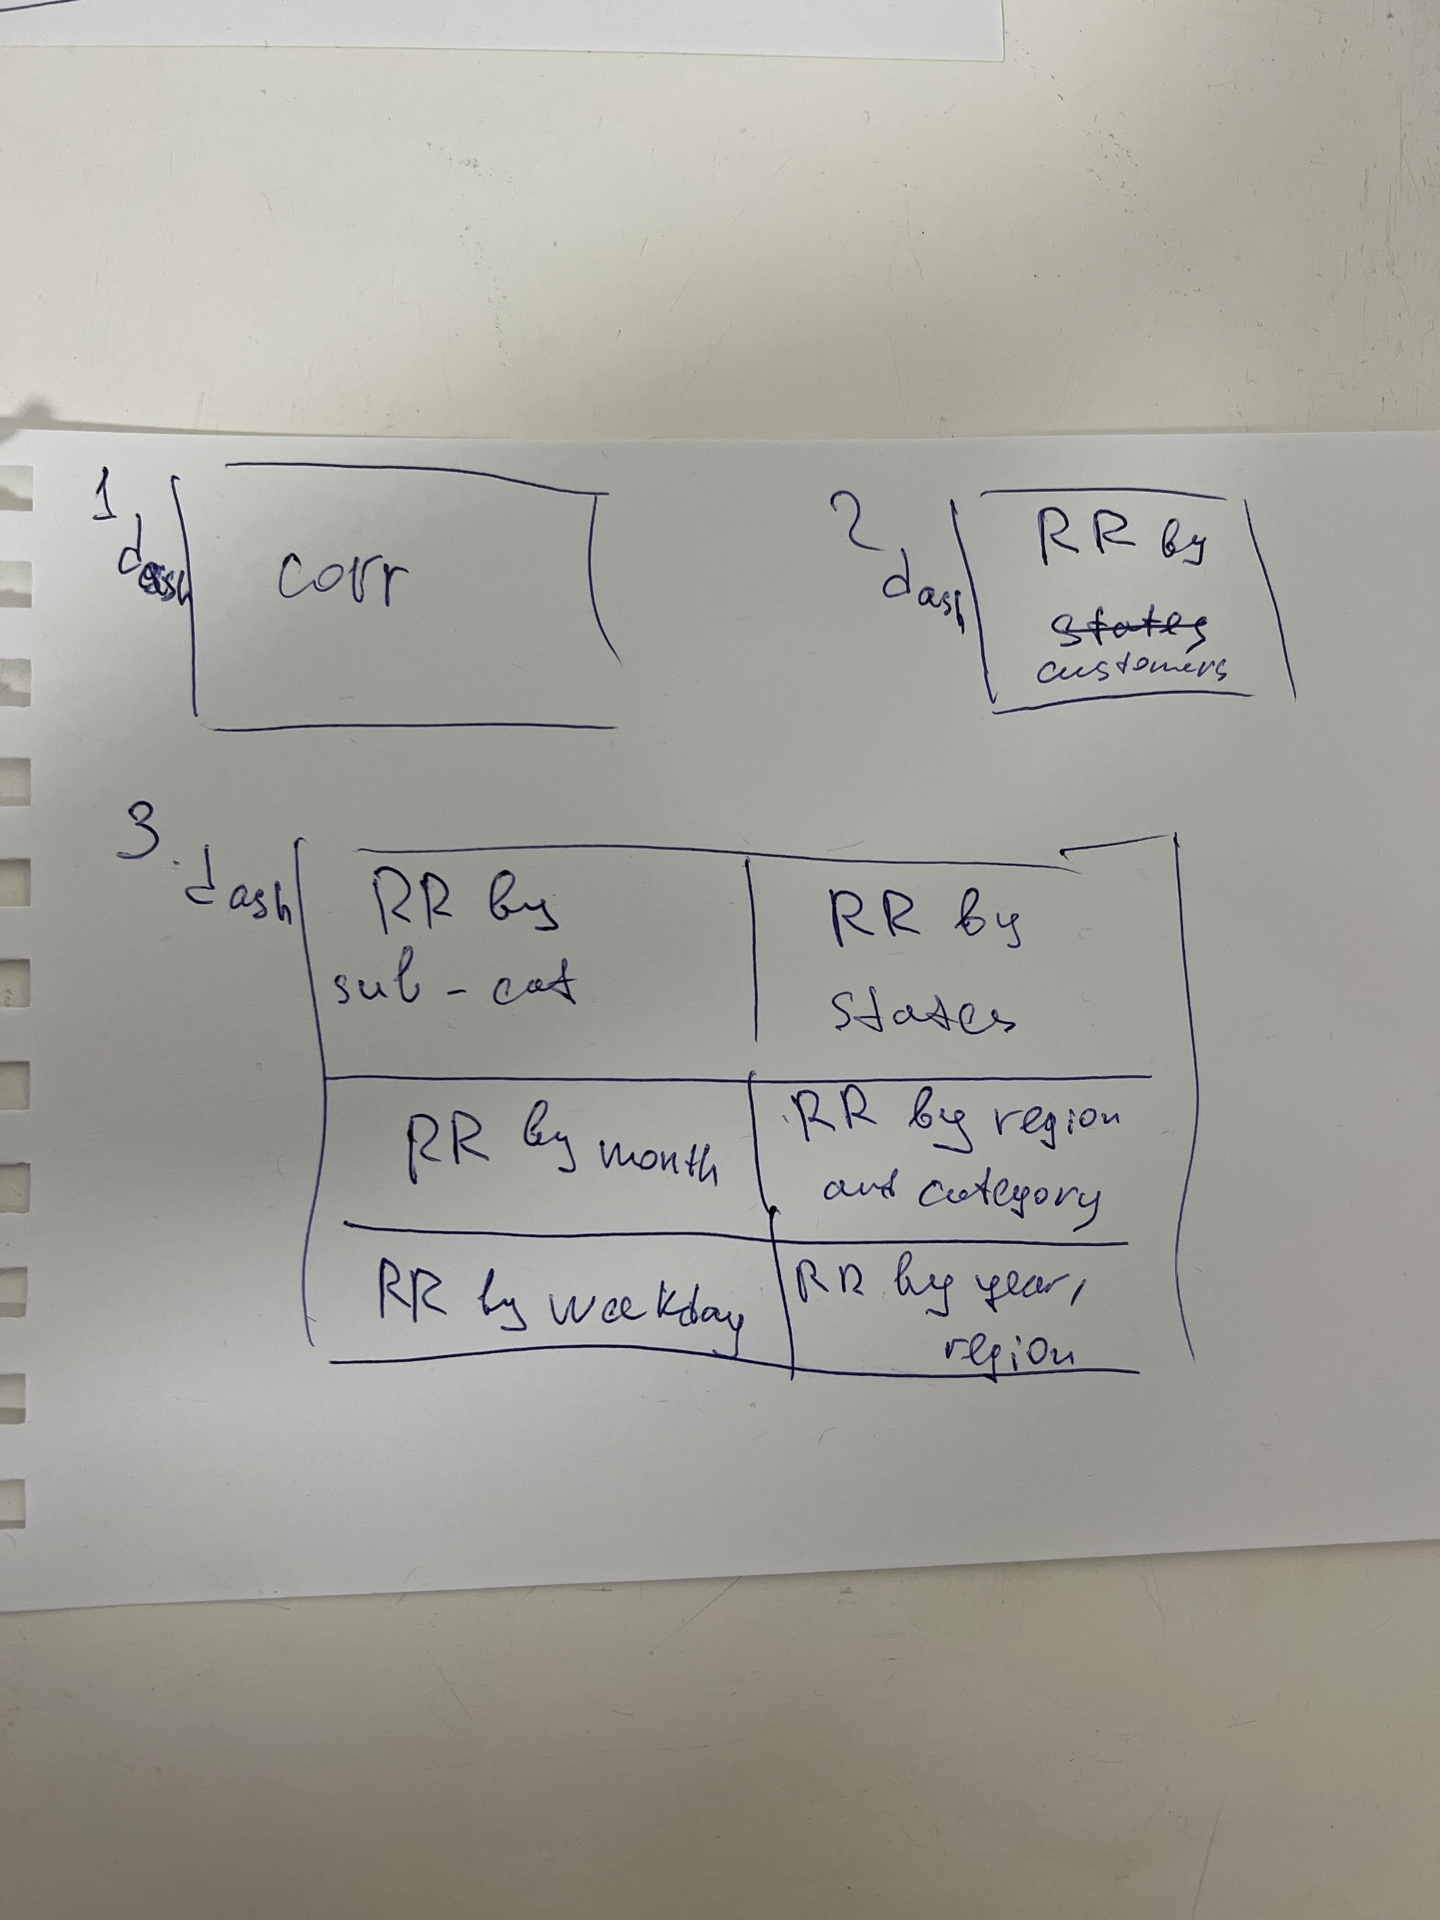 1.
dash
corr
2.
dash
RR by
states
customers
3.
dash
RR by
sub-cat
RR by
states
RR by month
RR by region
and category
RR by weekday
RR by year,
region